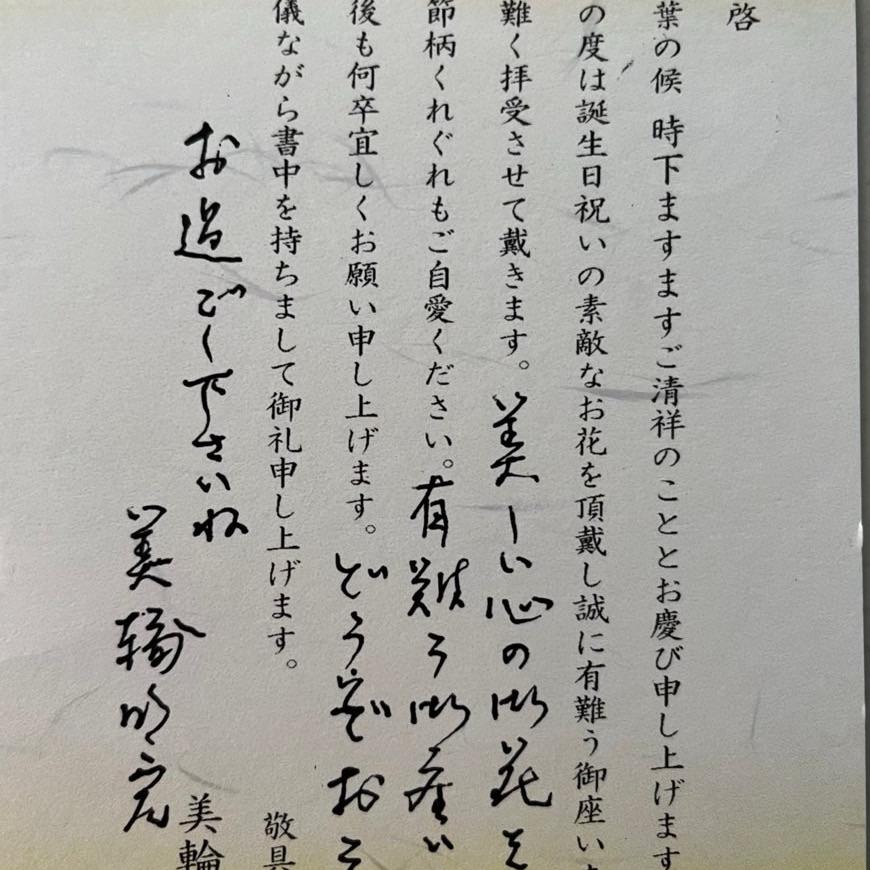 啓
葉の候 時下ますますご清祥のこととお慶び申し上げます
の度は誕生日祝いの素敵なお花を頂戴し誠に有難う御座いま
難く拝受させて戴きます。美しい心の御花を
節柄くれぐれもご自愛ください。有難う御座い
後も何卒宜しくお願い申し上げます。どうぞお
儀ながら書中を持ちまして御礼申し上げます。
敬具
お過ごし下さいね
美輪
美輪明宏